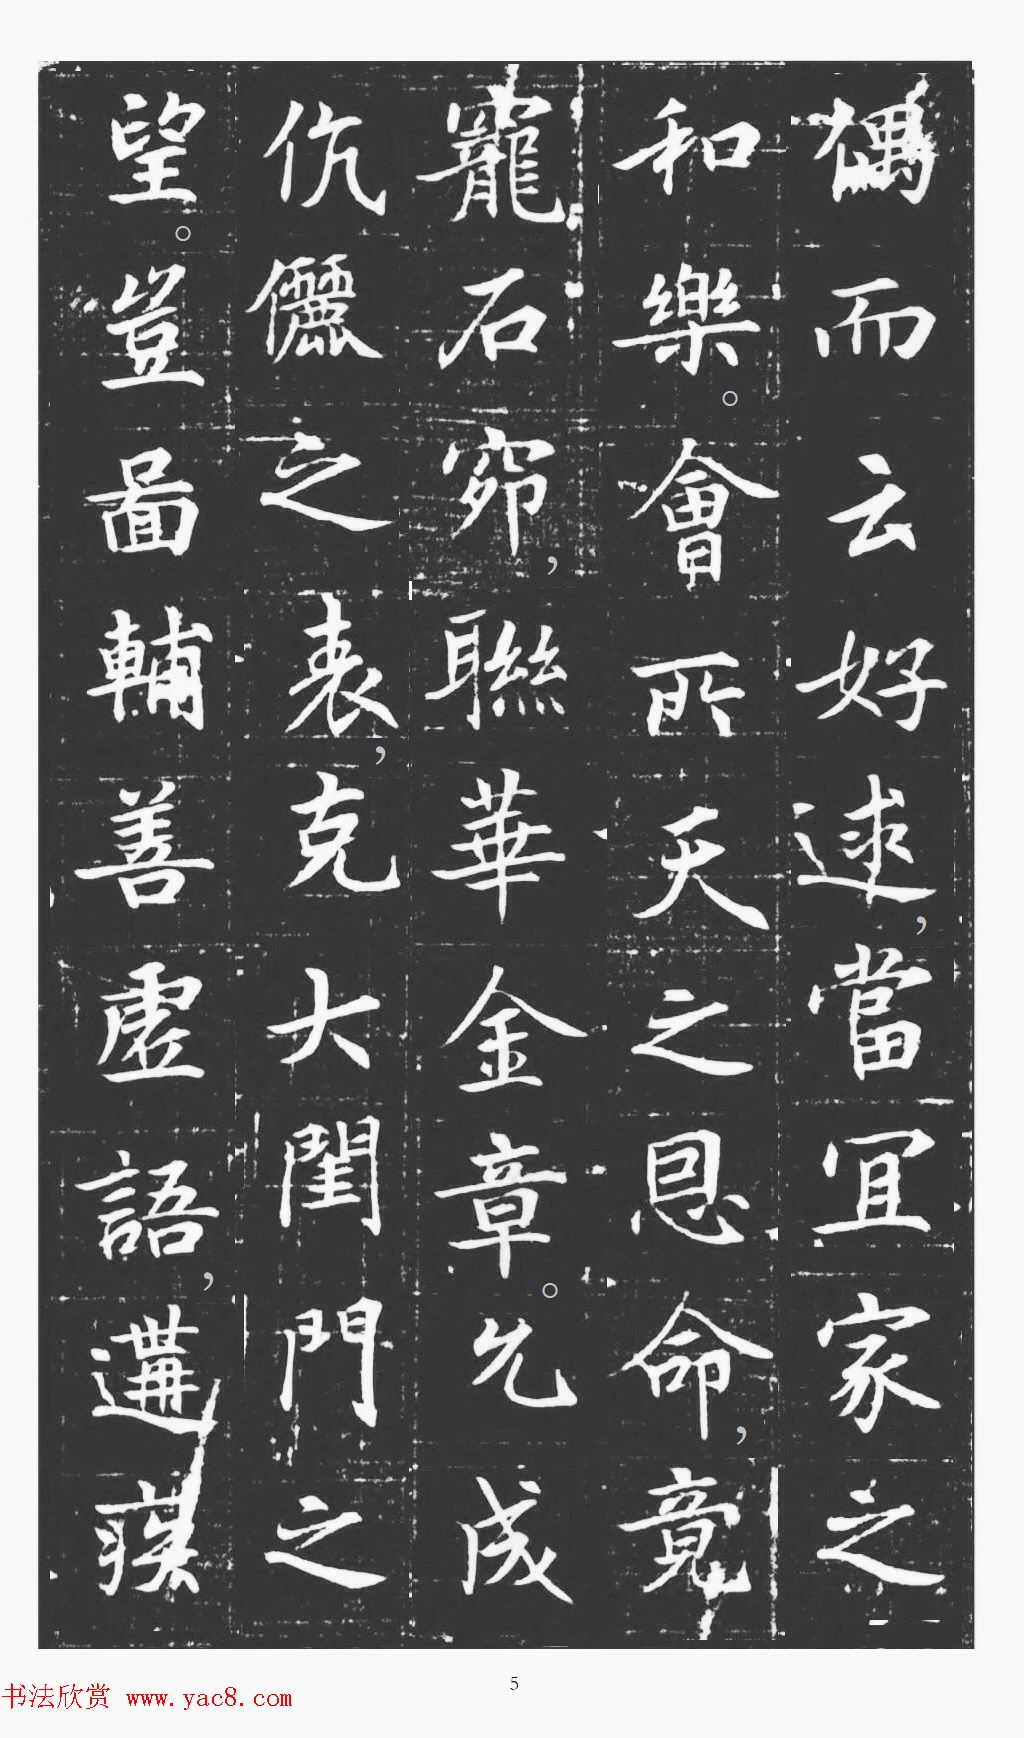 而云好逑，當宜家之
和樂。會所天之恩命，竟
寵石窌，聯華金章。允成
伉儷之表，克大閨門之
望。豈啚輔善虛語，遘疾
5
书法欣赏 www.yac8.com